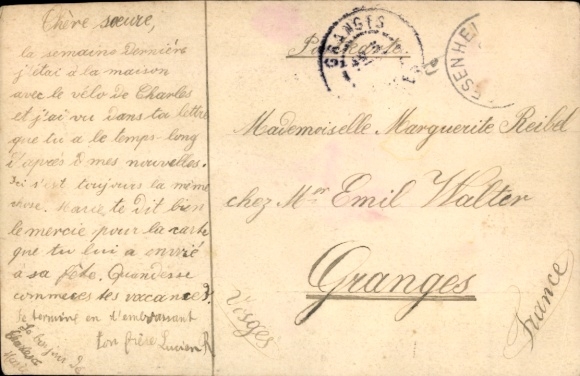 Chère sœure,
la semaine dernière
j'étai à la maison
avec le vélo de Charles
et j'ai vu dans ta lettre
que tu a le temps-long
d'après mes nouvelles.
Ici s'est toujours la même
chose. Marie te dit bien
le mercie pour la carte
que tu lui a
à sa fête. Quand
commeces tes vacances?
Je termine en t'embrassant
ton frère Lucien R
Le bonjour de
Charles et
Marie
Postkarte
GRANGES
Mademoiselle Marguerite Reibel
chez Mr Emil Walter
Granges
Vosges
France